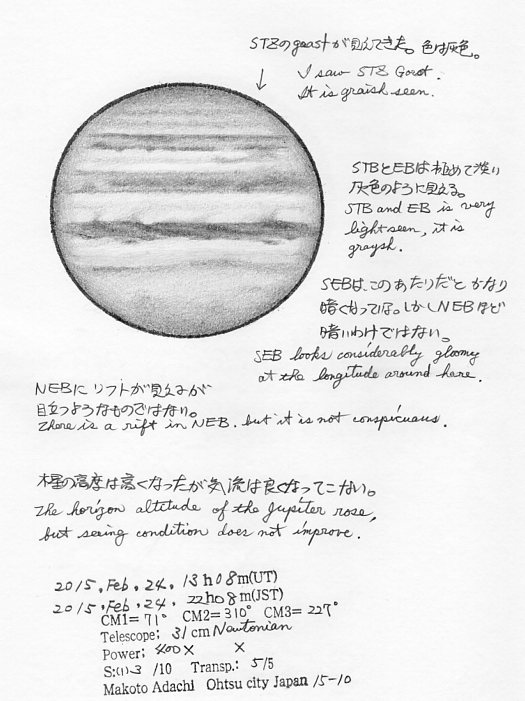 STZのgoastが見えてきた。色は灰色。
I saw STZ Goost.
It is graish seen.
STBとEBは極めて淡い
灰色のように見える。
STB and EB is very
light seen, it is
graysh.
SEBは、このあたりだとかなり
暗くなっている。しかしNEBほど
暗いわけではない。
SEB looks considerably gloomy
at the longitude around here.
NEBにリフトが見えるが
目立つようなものではない。
There is a rift in NEB. but it is not conspicuous.
木星の高度は高くなったが気流は良くなってこない。
The horizon altitude of the Jupiter rose,
but seeing condition does not improve.
2015, Feb, 24, 13h08m(UT)
2015, Feb, 24, 22h08m(JST)
CM1= 71° CM2= 310° CM3= 227°
Telescope; 31cm Newtonian
Power; 400× ×
S:(1)-3 /10 Transp.: 5/5
Makoto Adachi Ohtsu city Japan 15-10